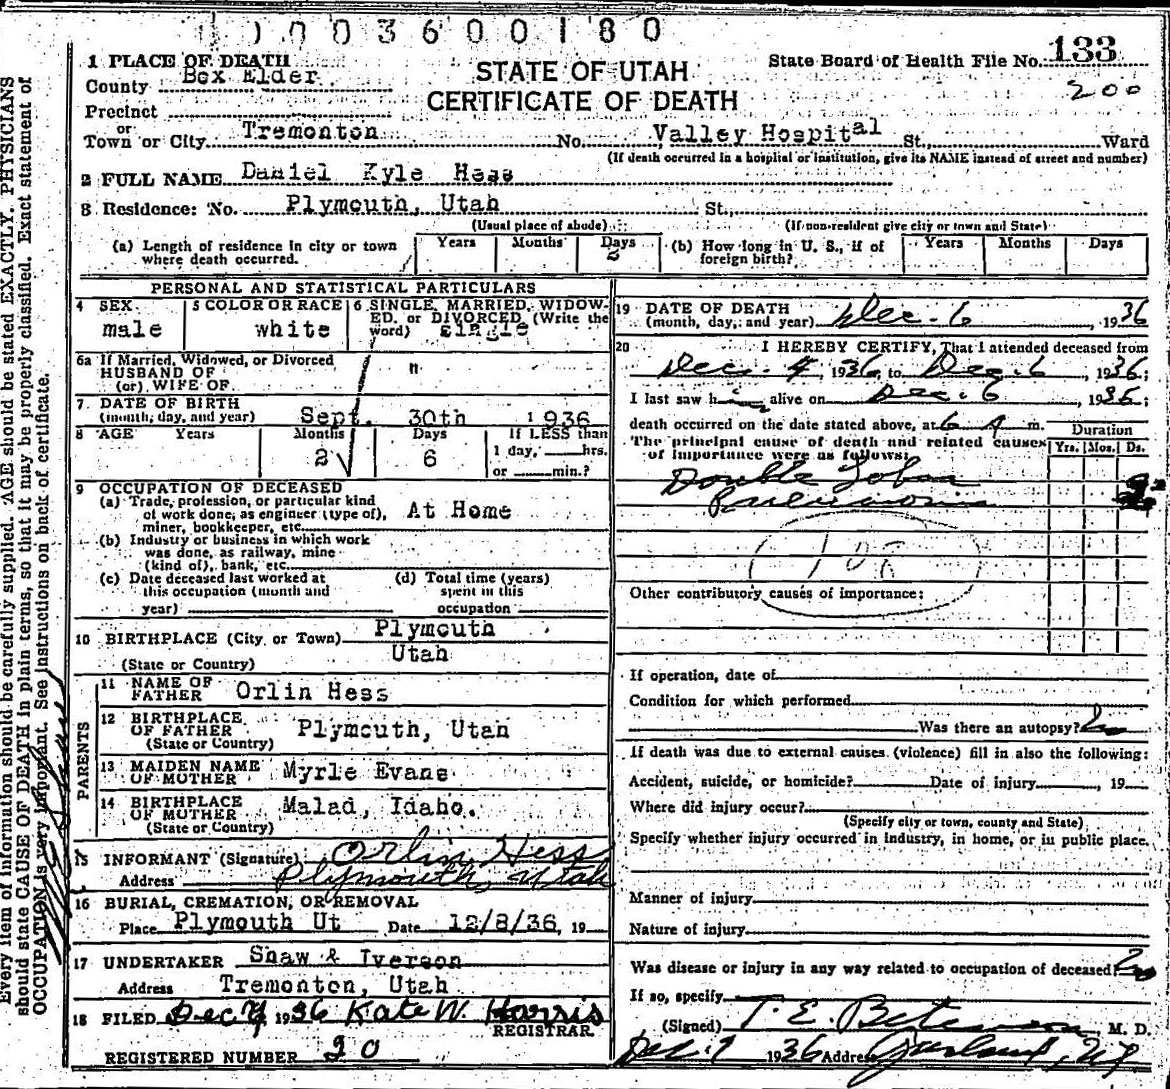 1 0 0 3 6 0 0 1 8 0
1 PLACE OF DEATH
County Box Elder
Precinct
or
Town or City Tremonton
STATE OF UTAH
CERTIFICATE OF DEATH
State Board of Health File No. 133
200
No. Valley Hospital St., Ward
(If death occurred in a hospital or institution, give its NAME instead of street and number)
2 FULL NAME Daniel Kyle Hess
3 Residence: No. Plymouth, Utah St.,
(Usual place of abode) (If non-resident give city or town and State)
(a) Length of residence in city or town where death occurred. Years Months Days 2
(b) How long in U. S., if of foreign birth? Years Months Days
PERSONAL AND STATISTICAL PARTICULARS
4 SEX male
5 COLOR OR RACE white
6 SINGLE, MARRIED, WIDOWED, or DIVORCED (Write the word) single
6a If Married, Widowed, or Divorced
HUSBAND OF
(or) WIFE OF "
7 DATE OF BIRTH
(month, day, and year) Sept. 30th 1936
8 AGE Years Months 2 Days 6 If LESS than
1 day, hrs.
or min.?
9 OCCUPATION OF DECEASED
(a) Trade, profession, or particular kind
of work done, as engineer (type of),
miner, bookkeeper, etc. At Home
(b) Industry or business in which work
was done, as railway, mine
(kind of), bank, etc.
(c) Date deceased last worked at
this occupation (month and
year)
(d) Total time (years)
spent in this
occupation
10 BIRTHPLACE (City or Town) Plymouth
(State or Country) Utah
PARENTS
11 NAME OF
FATHER Orlin Hess
12 BIRTHPLACE
OF FATHER Plymouth, Utah
(State or Country)
13 MAIDEN NAME
OF MOTHER Myrle Evans
14 BIRTHPLACE
OF MOTHER Malad, Idaho.
(State or Country)
15 INFORMANT (Signature) Orlin Hess
Address Plymouth, Utah
16 BURIAL, CREMATION, OR REMOVAL
Place Plymouth Ut Date 12/8/36, 19
17 UNDERTAKER Shaw & Iverson
Address Tremonton, Utah
18 FILED Dec 7 1936 Kate W. Harris
REGISTRAR
REGISTERED NUMBER 20
19 DATE OF DEATH
(month, day, and year) Dec. 6, 1936
20 I HEREBY CERTIFY, That I attended deceased from
Dec. 4, 1936, to Dec. 6, 1936;
I last saw him alive on Dec. 6, 1936;
death occurred on the date stated above, at 6 A m.
The principal cause of death and related causes
of importance were as follows:
Duration
Yrs. Mos. Ds.
Double Lobar
Pneumonia
108
Other contributory causes of importance:
If operation, date of
Condition for which performed
Was there an autopsy? No
If death was due to external causes (violence) fill in also the following:
Accident, suicide, or homicide? Date of injury, 19
Where did injury occur?
(Specify city or town, county and State)
Specify whether injury occurred in industry, in home, or in public place.
Manner of injury
Nature of injury
Was disease or injury in any way related to occupation of deceased? No
If so, specify
(Signed) T. E. Betenson, M. D.
Dec. 7 1936 Address Garland, Ut
Every item of information should be carefully supplied. AGE should be stated EXACTLY. PHYSICIANS
should state CAUSE OF DEATH in plain terms, so that it may be properly classified. Exact statement of
OCCUPATION is very important. See instructions on back of certificate.